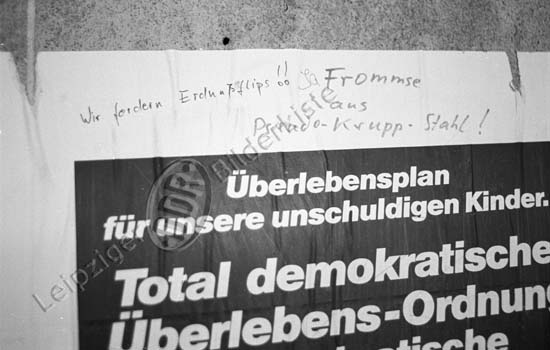 Wir fordern Erdnußflips!!
Ja Frommse
aus
Pseudo-Krupp-Stahl!
Überlebensplan
für unsere unschuldigen Kinder.
Total demokratische
Überlebens-Ordnung
Leipziger DDR Bilderkiste